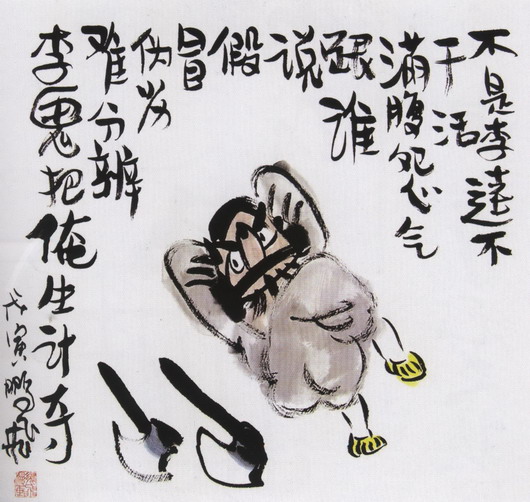 不是李逵不
干活
满腹怨气
跟谁
说
假
冒
伪劣
难分辨
李鬼把俺生计夺
戊寅鹏